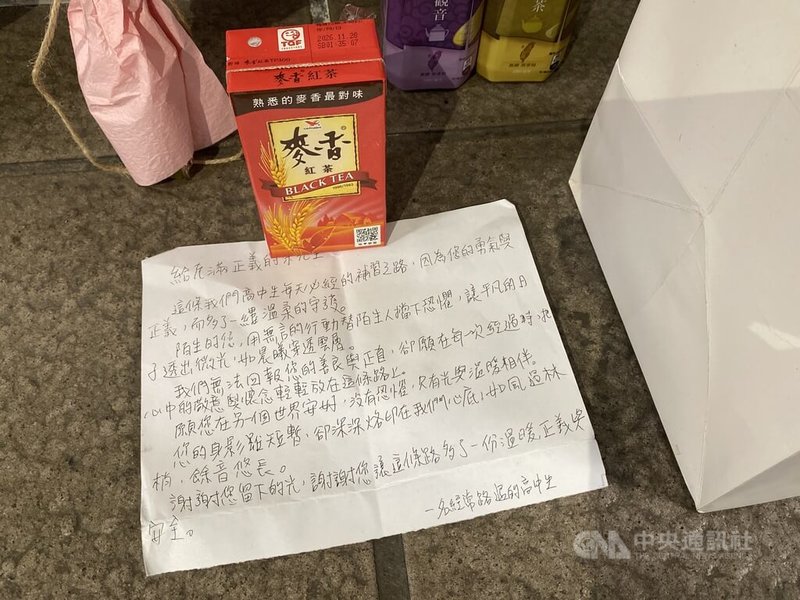 觀音
茶
TQF
2026.11.20
SB01:35:07
麥香紅茶TP300
熟悉的麥香最對味
麥香
紅茶
BLACK TEA
給充滿正義的
這條我們高中生每天必經的補習之路，因為您的勇氣與
正義，而多了一縷溫柔的守護。
陌生的您，用無言的行動替陌生人擋下恐懼，讓平凡的日
子透出微光，如晨曦穿透雲層。
我們無法回報您的善良與正直，卻願在每一次經過時，
心中的敬意與懷念輕輕放在這條路上。
願您在另一個世界安好，沒有恐懼，只有光與溫暖相伴。
您的身影雖短暫，卻深深烙印在我們心底，如風過林
梢，餘音悠長。
謝謝您留下的光，謝謝您讓這條路多了一份溫暖、正義與
安全。
一名經常路過的高中生
CNA 中央通訊社